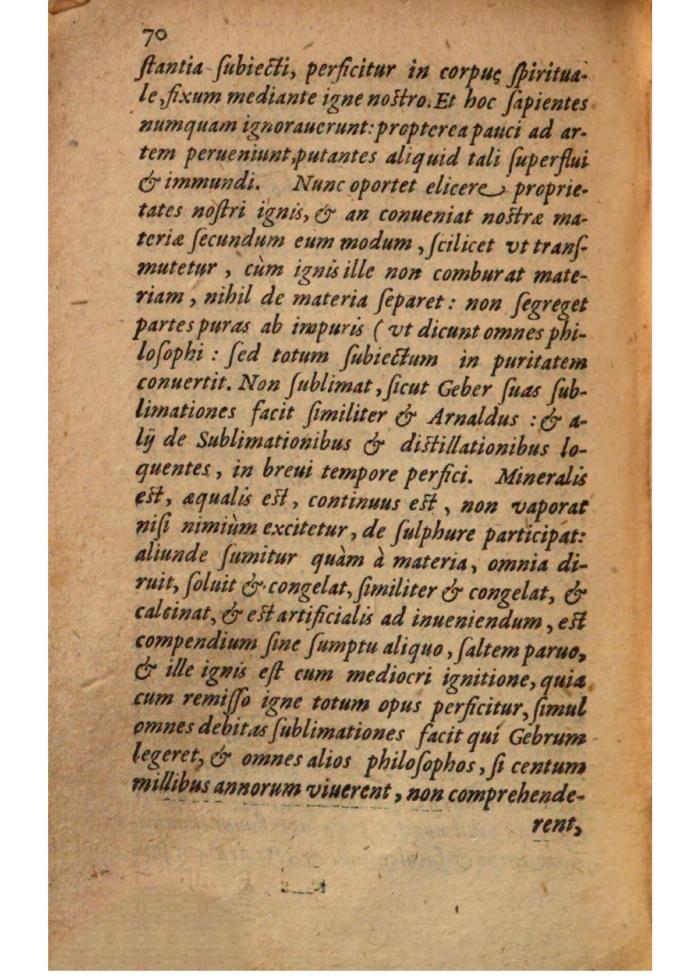 70
ſtantia ſubiecti, perficitur in corpus ſpiritua-
le, fixum mediante igne noſtro. Et hoc ſapientes
numquam ignorauerunt: propterea pauci ad ar-
tem perueniunt, putantes aliquid tali ſuperflui
& immundi. Nunc oportet elicere proprie-
tates noſtri ignis, & an conueniat noſtræ ma-
teriæ ſecundum eum modum, ſcilicet vt tranſ-
mutetur, cùm ignis ille non comburat mate-
riam, nihil de materia ſeparet: non ſegreget
partes puras ab impuris (vt dicunt omnes phi-
loſophi: ſed totum ſubiectum in puritatem
conuertit. Non ſublimat, ſicut Geber ſuas ſub-
limationes facit ſimiliter & Arnaldus: & a-
lij de Sublimationibus & diſtillationibus lo-
quentes, in breui tempore perfici. Mineralis
eſt, æqualis eſt, continuus eſt, non vaporat
niſi nimiùm excitetur, de ſulphure participat:
aliunde ſumitur quàm à materia, omnia di-
ruit, ſoluit & congelat, ſimiliter & congelat, &
calcinat, & eſt artificialis ad inueniendum, eſt
compendium ſine ſumptu aliquo, ſaltem paruo,
& ille ignis eſt cum mediocri ignitione, quia
cum remiſſo igne totum opus perficitur, ſimul
omnes debitas ſublimationes facit qui Gebrum
legeret, & omnes alios philoſophos, ſi centum
millibus annorum viuerent, non comprehende-
rent,